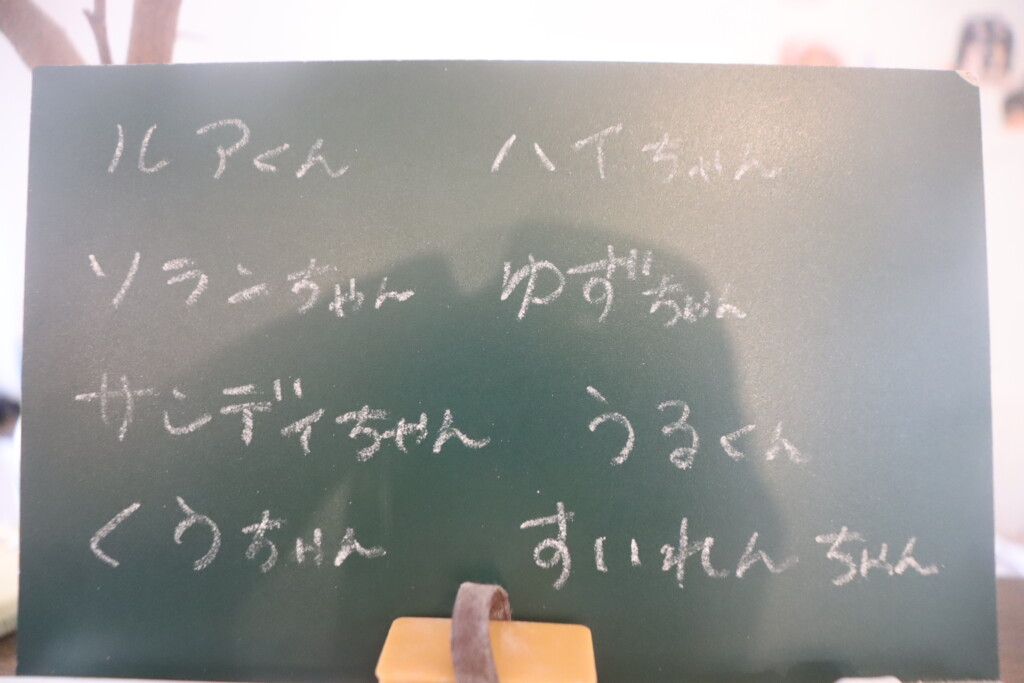 ルアくん ハイちゃん
ソランちゃん ゆずちゃん
サンディちゃん うるくん
くうちゃん すいれんちゃん